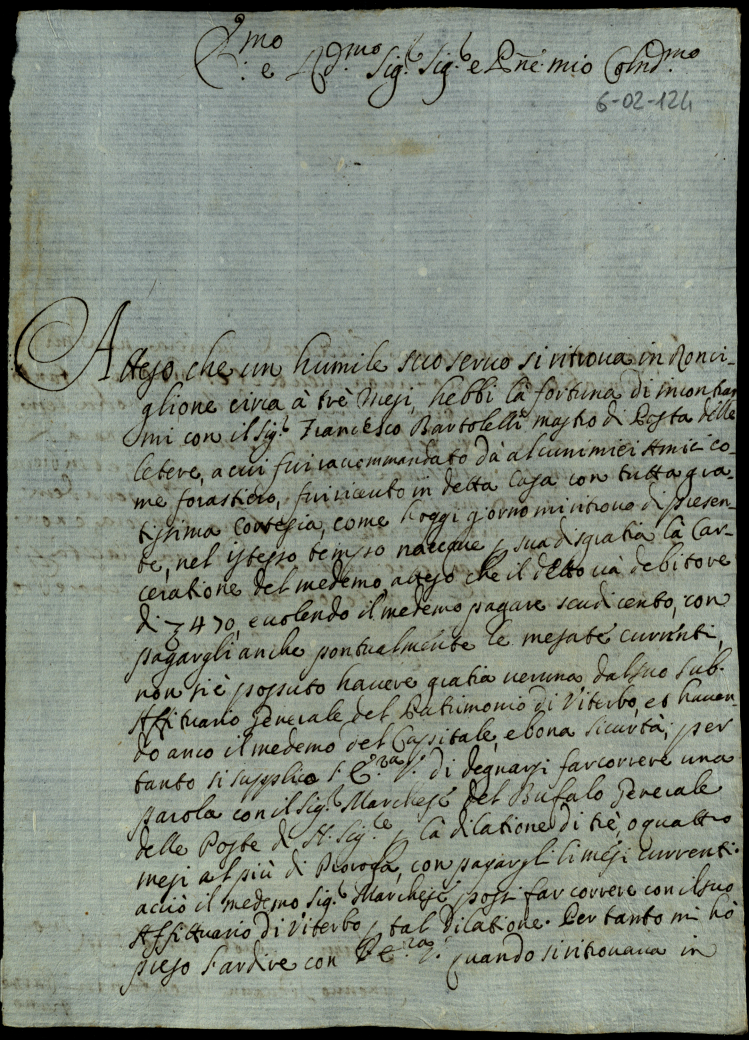 Ill.mo e R.mo Sig.r Sig.r e Pne mio Colnd.mo
6-02-124
Atteso che un humile suo seruo si ritroua in Ronci-
glione circa à trè mesi, hebbi la fortuna di incontrar
mi con il Sig.r Francesco Bartolelli mastro di Posta delle
letere, a cui fui racommandato da alcuni miei Amici co-
me forastiero, fui riceuto in detta Casa con tutta gra-
tissima Cortesia, come hoggi giorno mi ritrouo di presen-
te, nel istesso tempo nacque p sua disgratia la Car-
ceratione del medemo atteso che il detto uà debitore
di 470, e uolendo il medemo pagare scudi cento, con
pagargli anche pontualmente le mesate currenti,
non si è possuto hauere gratia ueruna dal suo sub-
Affituario Generale del Patrimonio di Viterbo, et hauen-
do anco il medemo del Capitale, e bona sicurtà, per
tanto si supplica di degnarsi far correre una
parola con il Sig.r Marchese del Bufalo Generale
delle Poste di N. Sig.re p la dilatione di trè, o quattro
mesi al più di Proroga, con pagargli li mesi currenti.
acciò il medemo Sig.r Marchese possi far correre con il suo
Affittuario di Viterbo p tal dilatione. Per tanto mi hò
preso l'ardire con quando si ritrouaua in